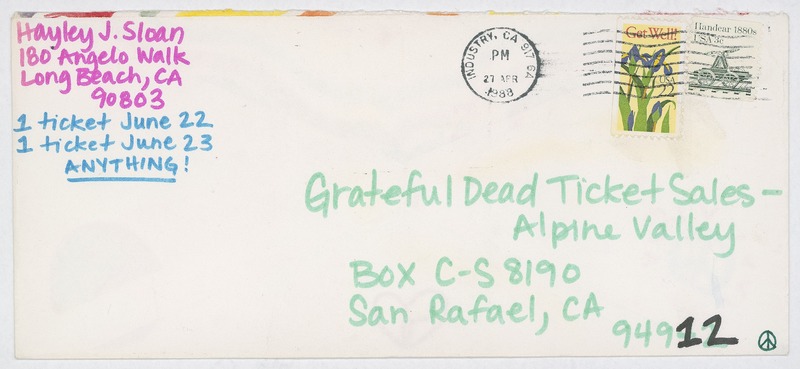 Hayley J. Sloan
180 Angelo Walk
Long Beach, CA
90803
1 ticket June 22
1 ticket June 23
ANYTHING!
INDUSTRY, CA 917 GA
PM
27 APR
1988
Get Well!
USA
22
Handcar 1880s
USA 3c
Grateful Dead Ticket Sales –
Alpine Valley
Box C-S 8190
San Rafael, CA
94912